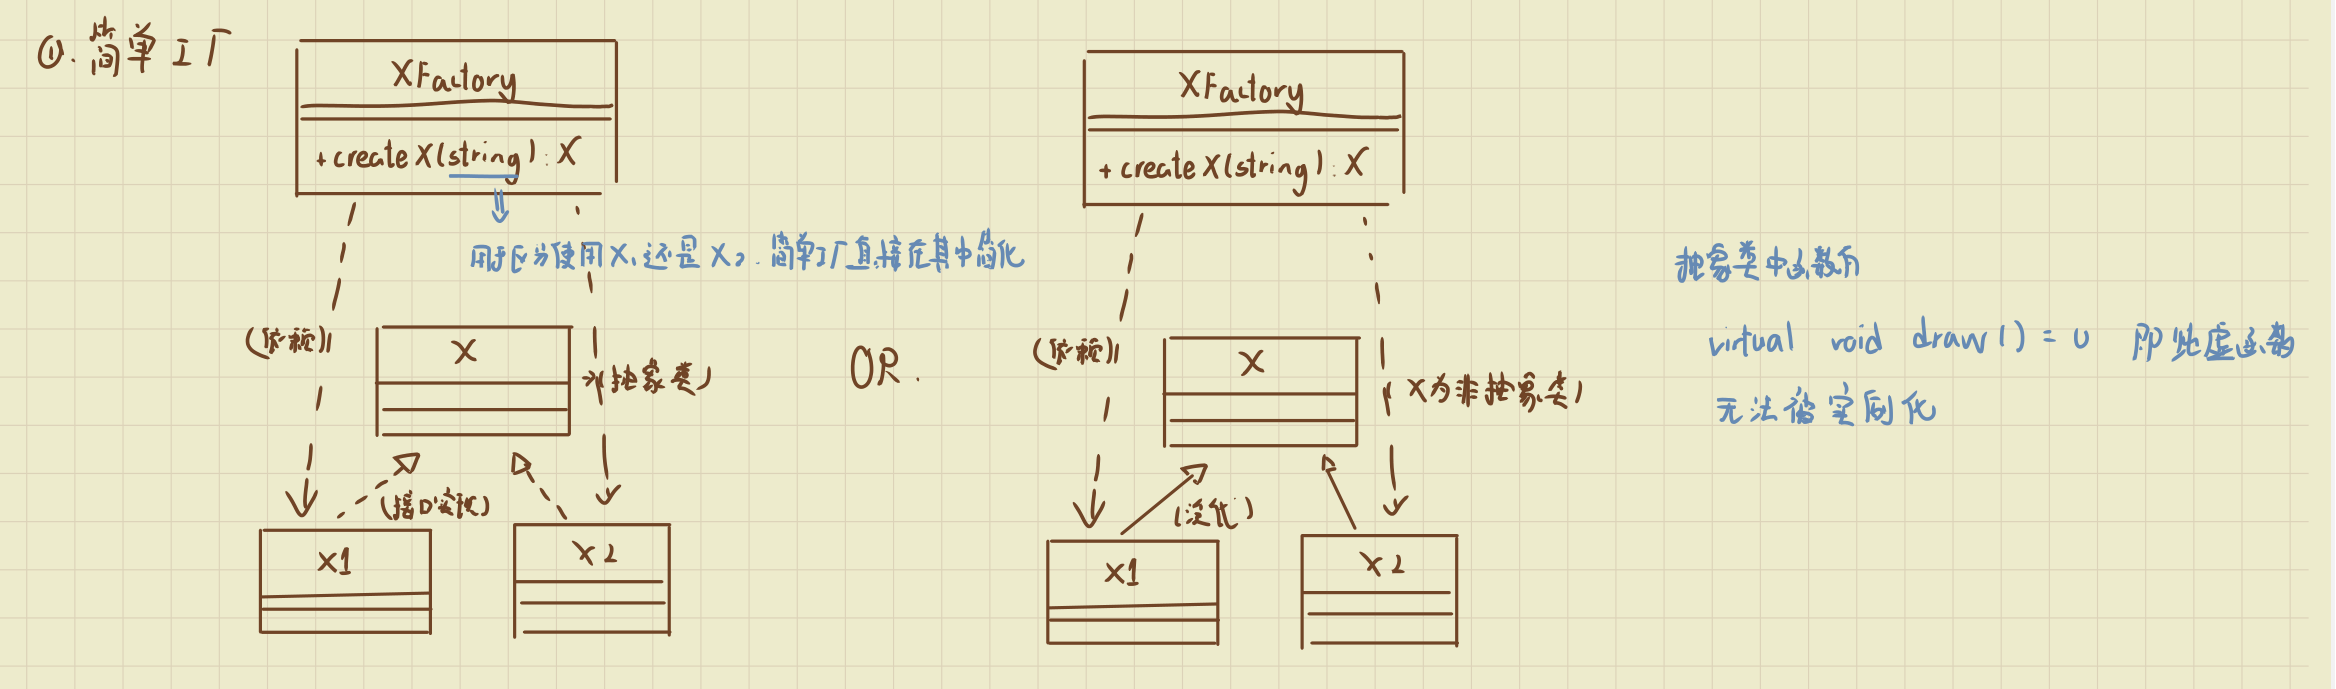 ①. 简单工厂
XFactory
+ create X(string) : X
用于区分使用X1还是X2. 简单工厂直接在其中简化
(依赖)
X
(抽象类)
(接口实现)
X1
X2
OR.
XFactory
+ create X(string) : X
(依赖)
X
(X为非抽象类)
(泛化)
X1
X2
抽象类中函数有
virtual void draw() = 0 即纯虚函数
无法被实例化